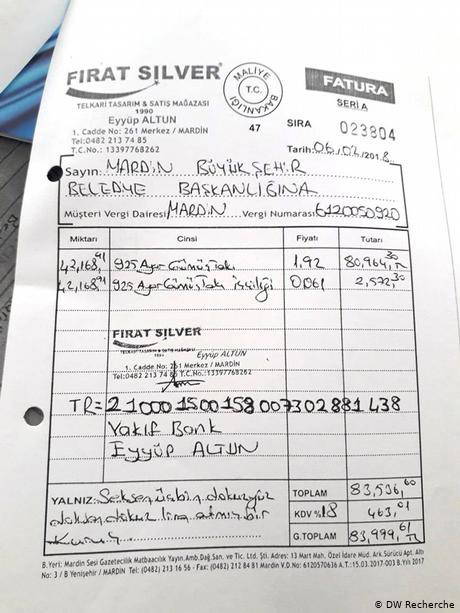 FIRAT SILVER
TELKARİ TASARIM & SATIŞ MAĞAZASI
1990
Eyyüp ALTUN
1. Cadde No: 261 Merkez / MARDİN
Tel:0482 213 74 85
T.C.No.: 13397768262
MALİYE T.C. BAKANLIĞI
47
FATURA
SERİ A
SIRA 023804
Tarih: 06/02/2018
Sayın: MARDİN BÜYÜKŞEHİR
BELEDİYE BAŞKANLIĞINA
Müşteri Vergi Dairesi MARDİN Vergi Numarası 6120050920
Miktarı Cinsi Fiyatı Tutarı
42,168,91 925 Ayar Gümüş Takı 1,92 80,964,30 TL
42,168,91 925 Ayar Gümüş Takı işçiliği 0,061 2,572,30
FIRAT SILVER
TELKARİ TASARIM & SATIŞ MAĞAZASI
1990 Eyyüp ALTUN
1. Cadde No: 261 Merkez / MARDİN
Tel:0482 213 74 85 T.C.No.:13397768262
TR= 21000 1500 158 007302881438
Vakıf Bank
EYYÜP ALTUN
YALNIZ: Seksenüçbin dokuzyüz
doksan dokuz lira altmış bir
Kuruş
TOPLAM 83,536,60
KDV %18 463,01
G.TOPLAM 83,999,61 TL
B.Yeri: Mardin Sesi Gazetecilik Matbaacılık Yayın.Amb.Dağ.San. ve Tic. Ltd. Şti. Adres: 13 Mart Mah. Özel İdare Müd. Ark Sürücü Apt. Altı
No: 3 / B Yenişehir / MARDİN Tel: (0482) 213 16 56 - Fax: (0482) 212 84 81 Mardin V.D.No: 6120570636 A.T.: 15.03.2017-003 B.Yılı 2017
© DW Recherche